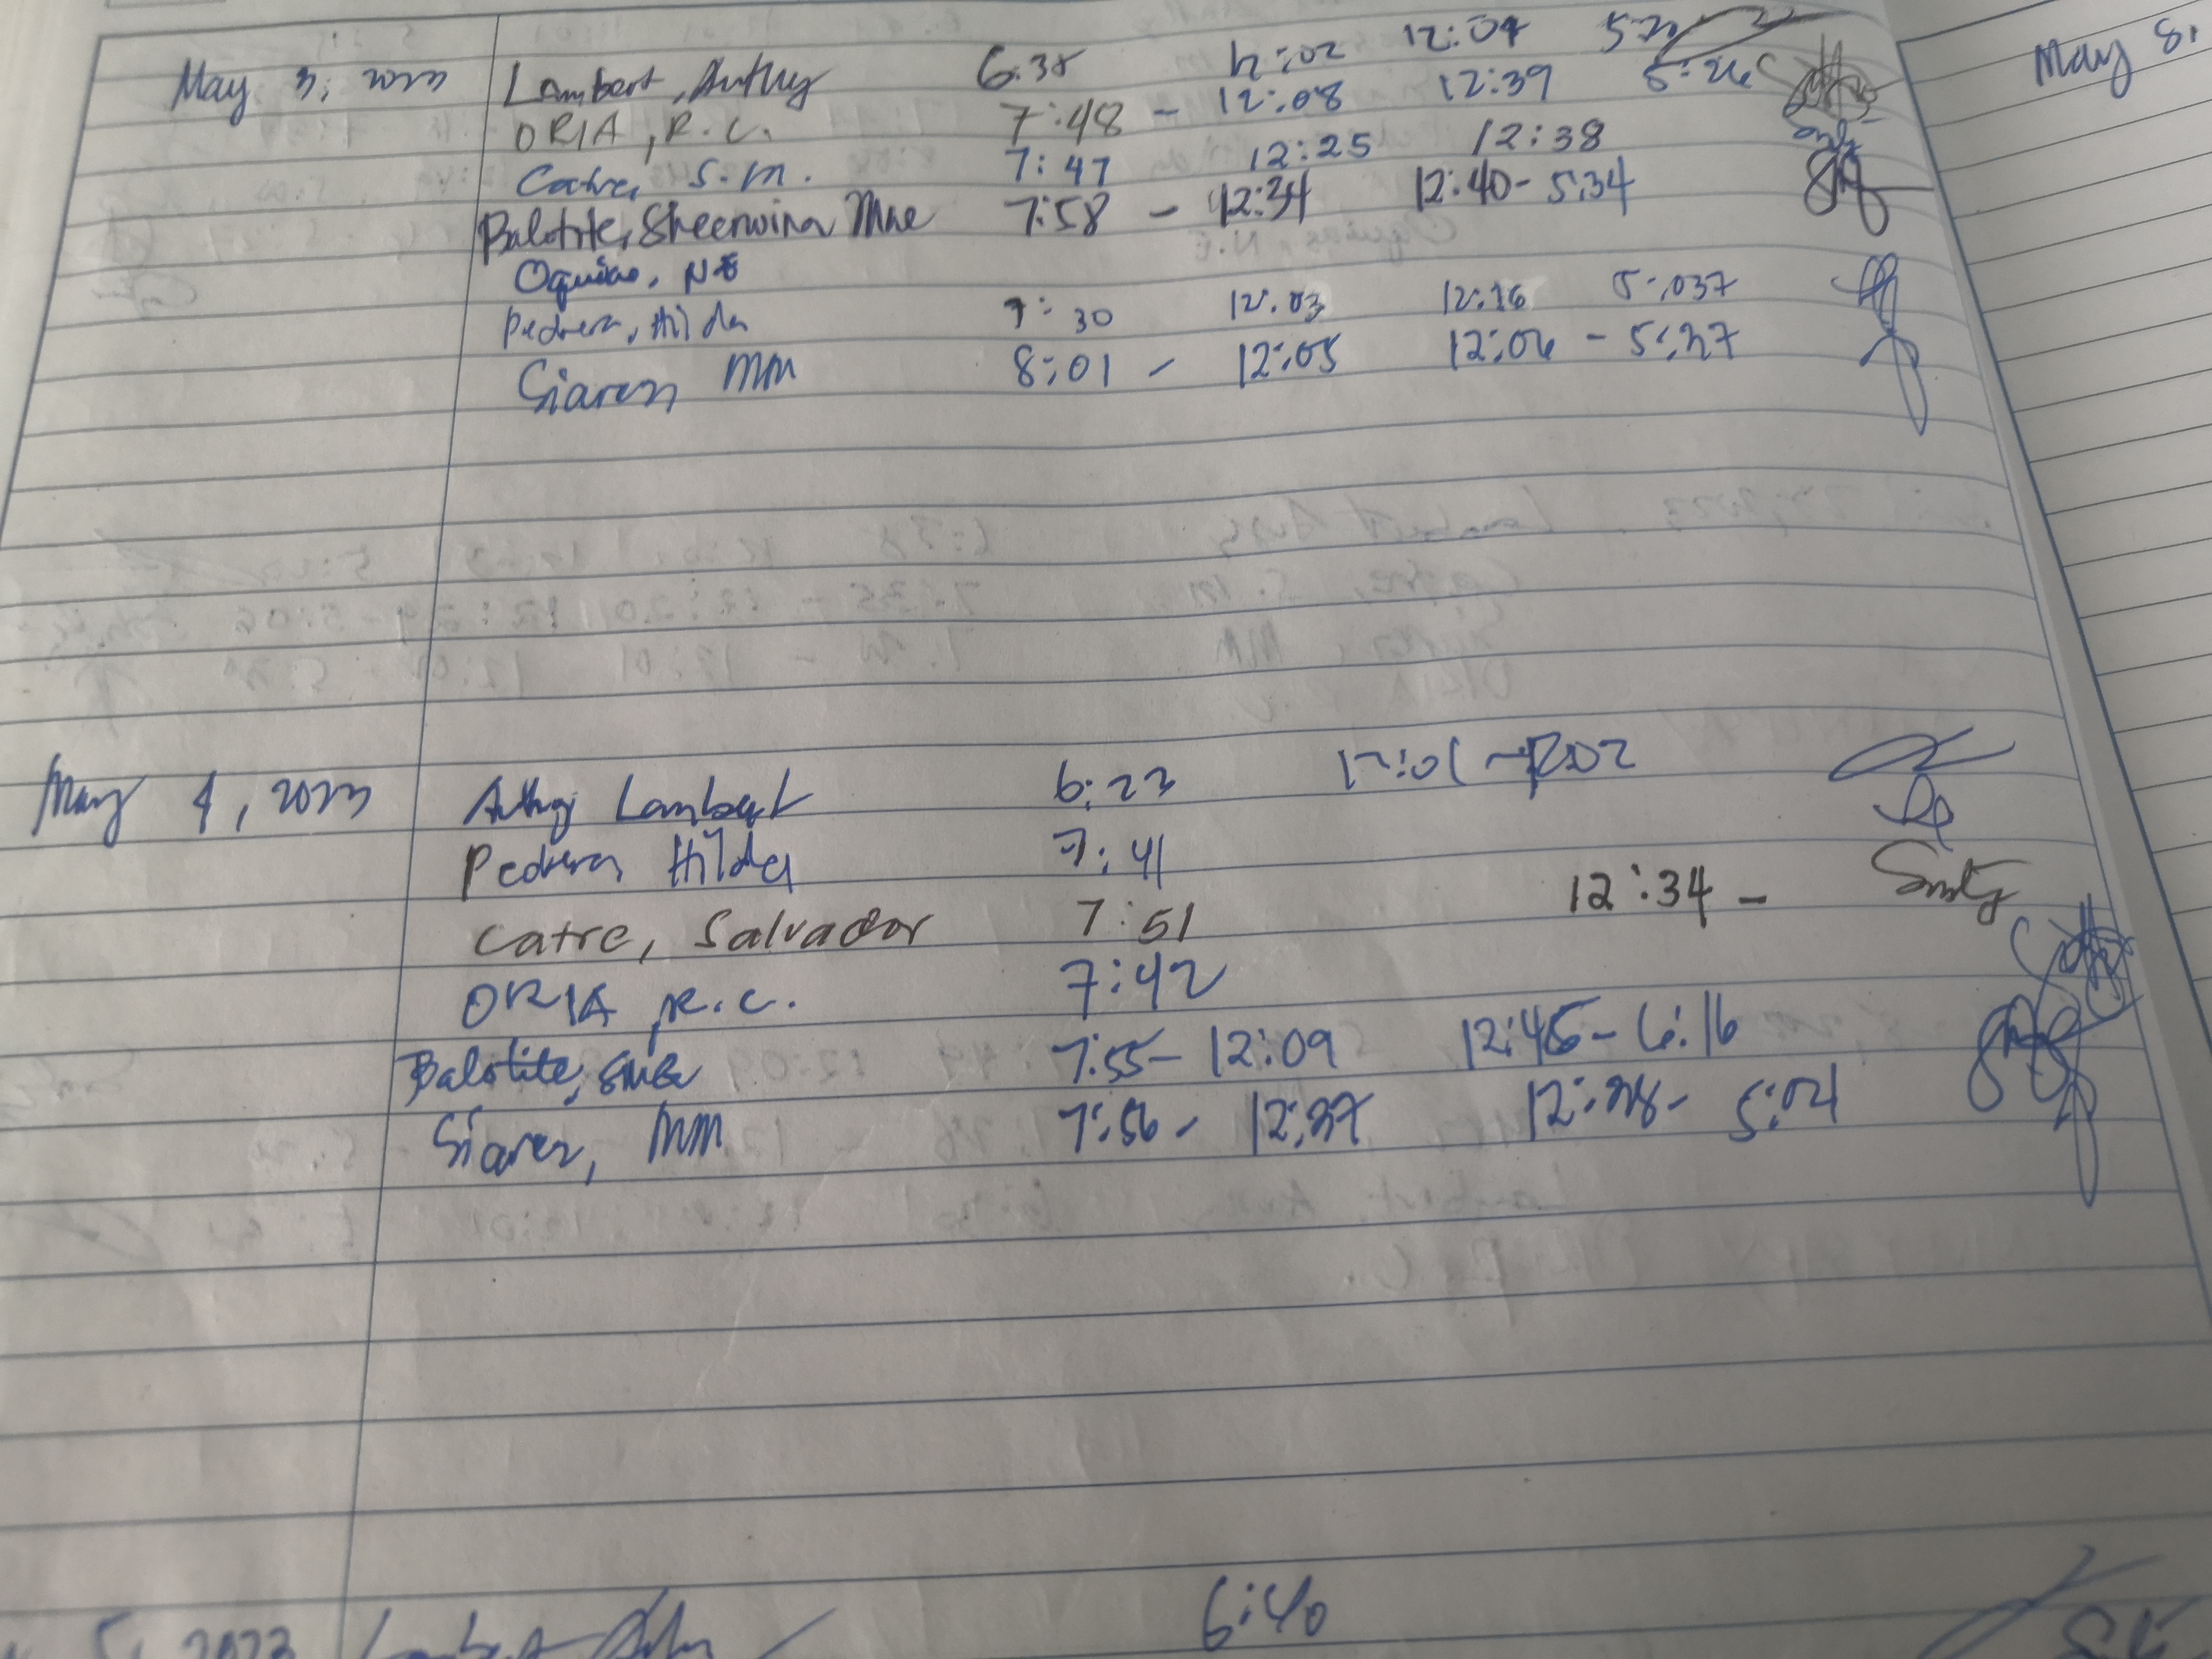 May 3, 2023 Lambert, Anthy 6:38 12:02 12:04 May 8,
ORIA, R.C. 7:48 - 12:08 12:39 5:26
Catre, S.M. 7:47 12:25 12:38
Balotite, Sheenwina Mae 7:58 - 12:34 12:40 - 5:34
Oquiao, N.E
Pedrera, Hilda 7:30 12:03 12:16 5:037
Siarez, MM 8:01 - 12:05 12:06 - 5:37
May 4, 2023 Anthy Lambert 6:23 12:01 - 12:02
Pedrera Hilda 7:41
Catre, Salvador 7:51 12:34 -
ORIA, R.C. 7:42
Balotite, SMB 7:55 - 12:09 12:45 - 6:16
Siarez, MM 7:56 - 12:37 12:38 - 5:04
5, 2023 Lambert 6:40